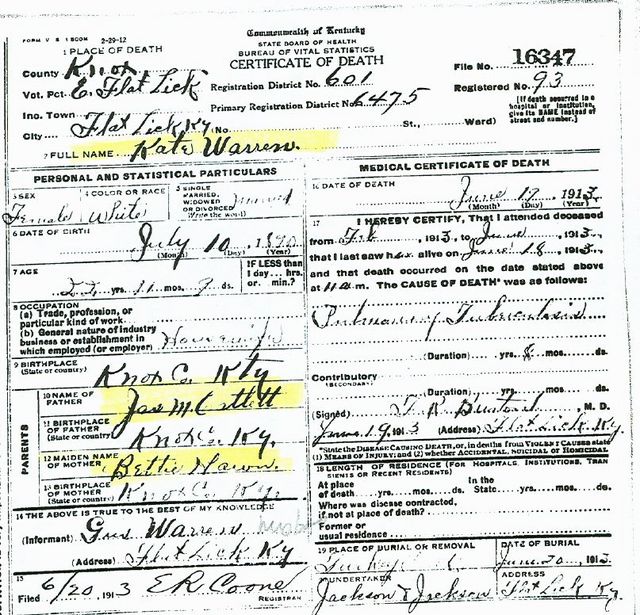 FORM V. S. 1 2-29-12
Commonwealth of Kentucky
STATE BOARD OF HEALTH
BUREAU OF VITAL STATISTICS
CERTIFICATE OF DEATH
1 PLACE OF DEATH
County Knox
Vot. Pct. E. Flat Lick
Inc. Town
City Flat Lick, Ky. No. St., Ward)
Registration District No. 601
Primary Registration District No. 6475
File No. 16347
Registered No. 93
(If death occurred in a hospital or institution, give its NAME instead of street and number.)
2 FULL NAME Kate Warren.
PERSONAL AND STATISTICAL PARTICULARS
3 SEX
Female
4 COLOR OR RACE
White
5 SINGLE, MARRIED, WIDOWED OR DIVORCED (Write the word)
married
6 DATE OF BIRTH
July 10, 1890
(Month) (Day) (Year)
7 AGE
22 yrs. 11 mos. 9 ds.
IF LESS than 1 day... hrs. or... min.?
8 OCCUPATION
(a) Trade, profession, or particular kind of work
(b) General nature of industry business or establishment in which employed (or employer)
Housewife
9 BIRTHPLACE
(State or country)
Knox Co. Kty
PARENTS
10 NAME OF FATHER
Jas M
11 BIRTHPLACE OF FATHER
(State or country)
Knox Co. Ky.
12 MAIDEN NAME OF MOTHER
Bettie
13 BIRTHPLACE OF MOTHER
(State or country)
Knox Co. Ky.
14 THE ABOVE IS TRUE TO THE BEST OF MY KNOWLEDGE
(Informant) Gus Warren husband
(Address) Flat Lick Ky
15
Filed 6/20, 1913 ER
REGISTRAR
MEDICAL CERTIFICATE OF DEATH
16 DATE OF DEATH
June 19, 1913.
(Month) (Day) (Year)
17 I HEREBY CERTIFY, That I attended deceased
from Feb, 1913, to June, 1913.
that I last saw her alive on June 18, 1913.
and that death occurred on the date stated above
at 11 m. The CAUSE OF DEATH* was as follows:
Pulmonary Tuberculosis
(Duration) yrs. 8 mos. ds.
Contributory
(SECONDARY)
(Duration) yrs. mos. ds.
(Signed) M. D.
June 19 1913 (Address) Flat Lick Ky
*State the DISEASE CAUSING DEATH, or, in deaths from VIOLENT CAUSES state (1) MEANS OF INJURY; and (2) whether ACCIDENTAL, SUICIDAL or HOMICIDAL
18 LENGTH OF RESIDENCE (FOR HOSPITALS, INSTITUTIONS, TRANSIENTS OR RECENT RESIDENTS)
At place of death... yrs... mos... ds. In the State... yrs... mos... ds.
Where was disease contracted, if not at place of death?
Former or usual residence
19 PLACE OF BURIAL OR REMOVAL
DATE OF BURIAL
June 20, 1913
20 UNDERTAKER
Jackson & Jackson
ADDRESS
Flat Lick Ky.